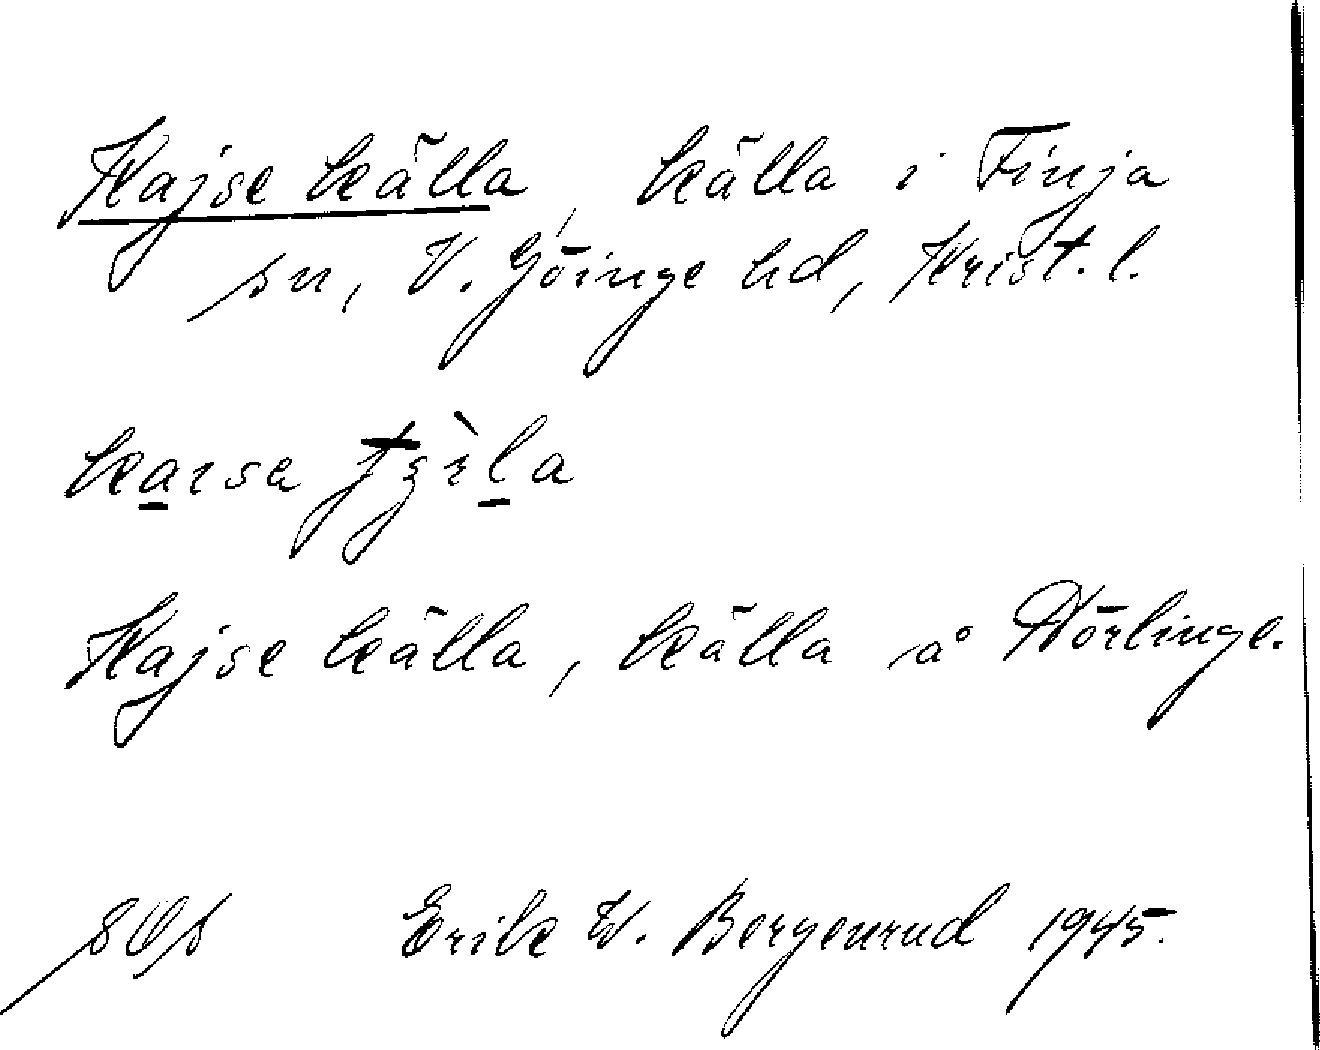 Kajse källa, källa i Finja
sn, V. Göinge hd, Krist. l.
Kajse källa, källa å Nörlinge.
Erik W. Bergenrud 1945.